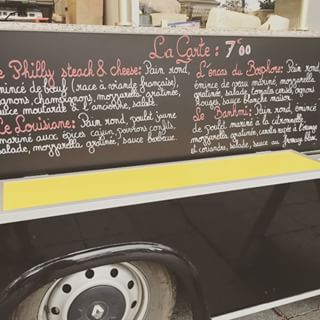 La Carte : 7€00
e Philly steack & cheese: Pain rond,
émincé de bœuf (race a viande française),
ignons, champignons, mozzarella gratinée,
auce moutarde à l'ancienne, salade
Le Louisiane: Pain rond, poulet jaune
mariné aux épices cajun, poivrons confits,
salade, mozzarella gratinée, sauce barbecue.
L'encas du Bosphore: Pain rond,
émincé de veau mariné, mozzarella
gratinée, salade, tomates cerises, oignons
Rouges, sauce blanche maison.
Le Banhmi: Pain rond, émincé
de poulet mariné à la citronnelle,
mozzarella gratinée, carotte
et coriandre, salade, sauce au fromage blanc